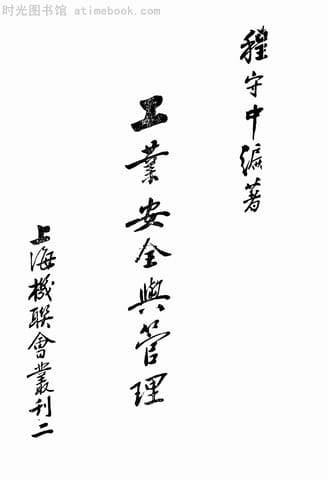 时光图书馆 atimebook.com
程守中编著
工業安全與管理
上海機联會叢刊之二